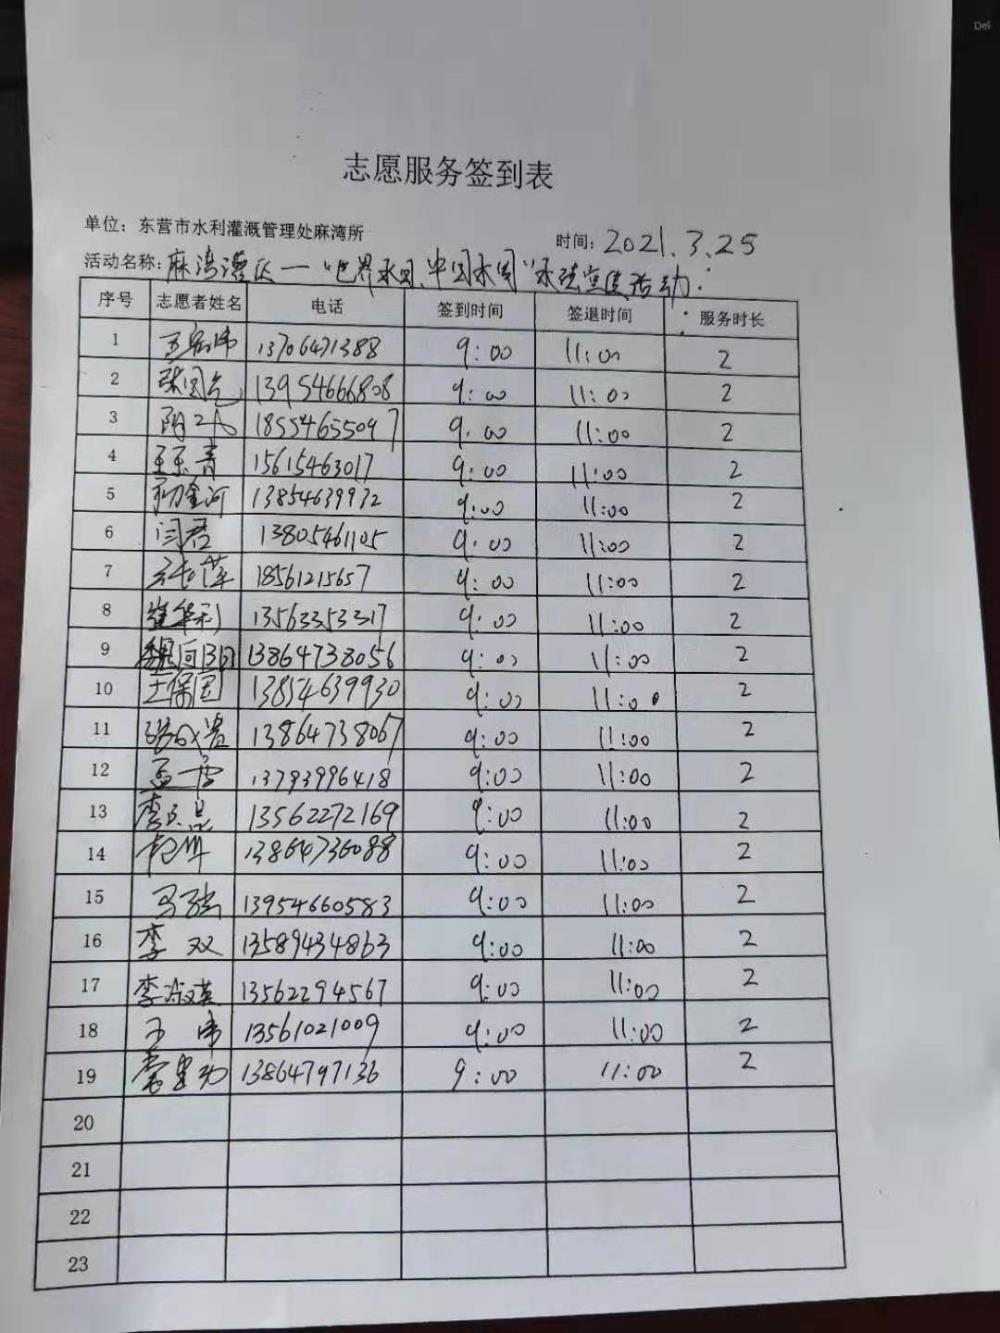 Del
志愿服务签到表
单位：东营市水利灌溉管理处麻湾所
时间：2021.3.25
活动名称：麻湾灌区—“世界水日、中国水周”水法宣传活动
序号 志愿者姓名 电话 签到时间 签退时间 服务时长
1 13706471388 9:00 11:00 2
2 张国元 13954666808 9:00 11:00 2
3 18554655097 9:00 11:00 2
4 15615463017 9:00 11:00 2
5 13854639932 9:00 11:00 2
6 闫君 13805461105 9:00 11:00 2
7 张萍 18561215657 9:00 11:00 2
8 崔华利 13563353317 9:00 11:00 2
9 魏向阳 13864738056 9:00 11:00 2
10 王保国 13854639930 9:00 11:00 2
11 13864738067 9:00 11:00 2
12 13793996418 9:00 11:00 2
13 13562272169 9:00 11:00 2
14 13864736088 9:00 11:00 2
15 13954660583 9:00 11:00 2
16 李双 13589434863 9:00 11:00 2
17 李淑英 13562294567 9:00 11:00 2
18 王伟 13561021009 9:00 11:00 2
19 13864797136 9:00 11:00 2
20
21
22
23